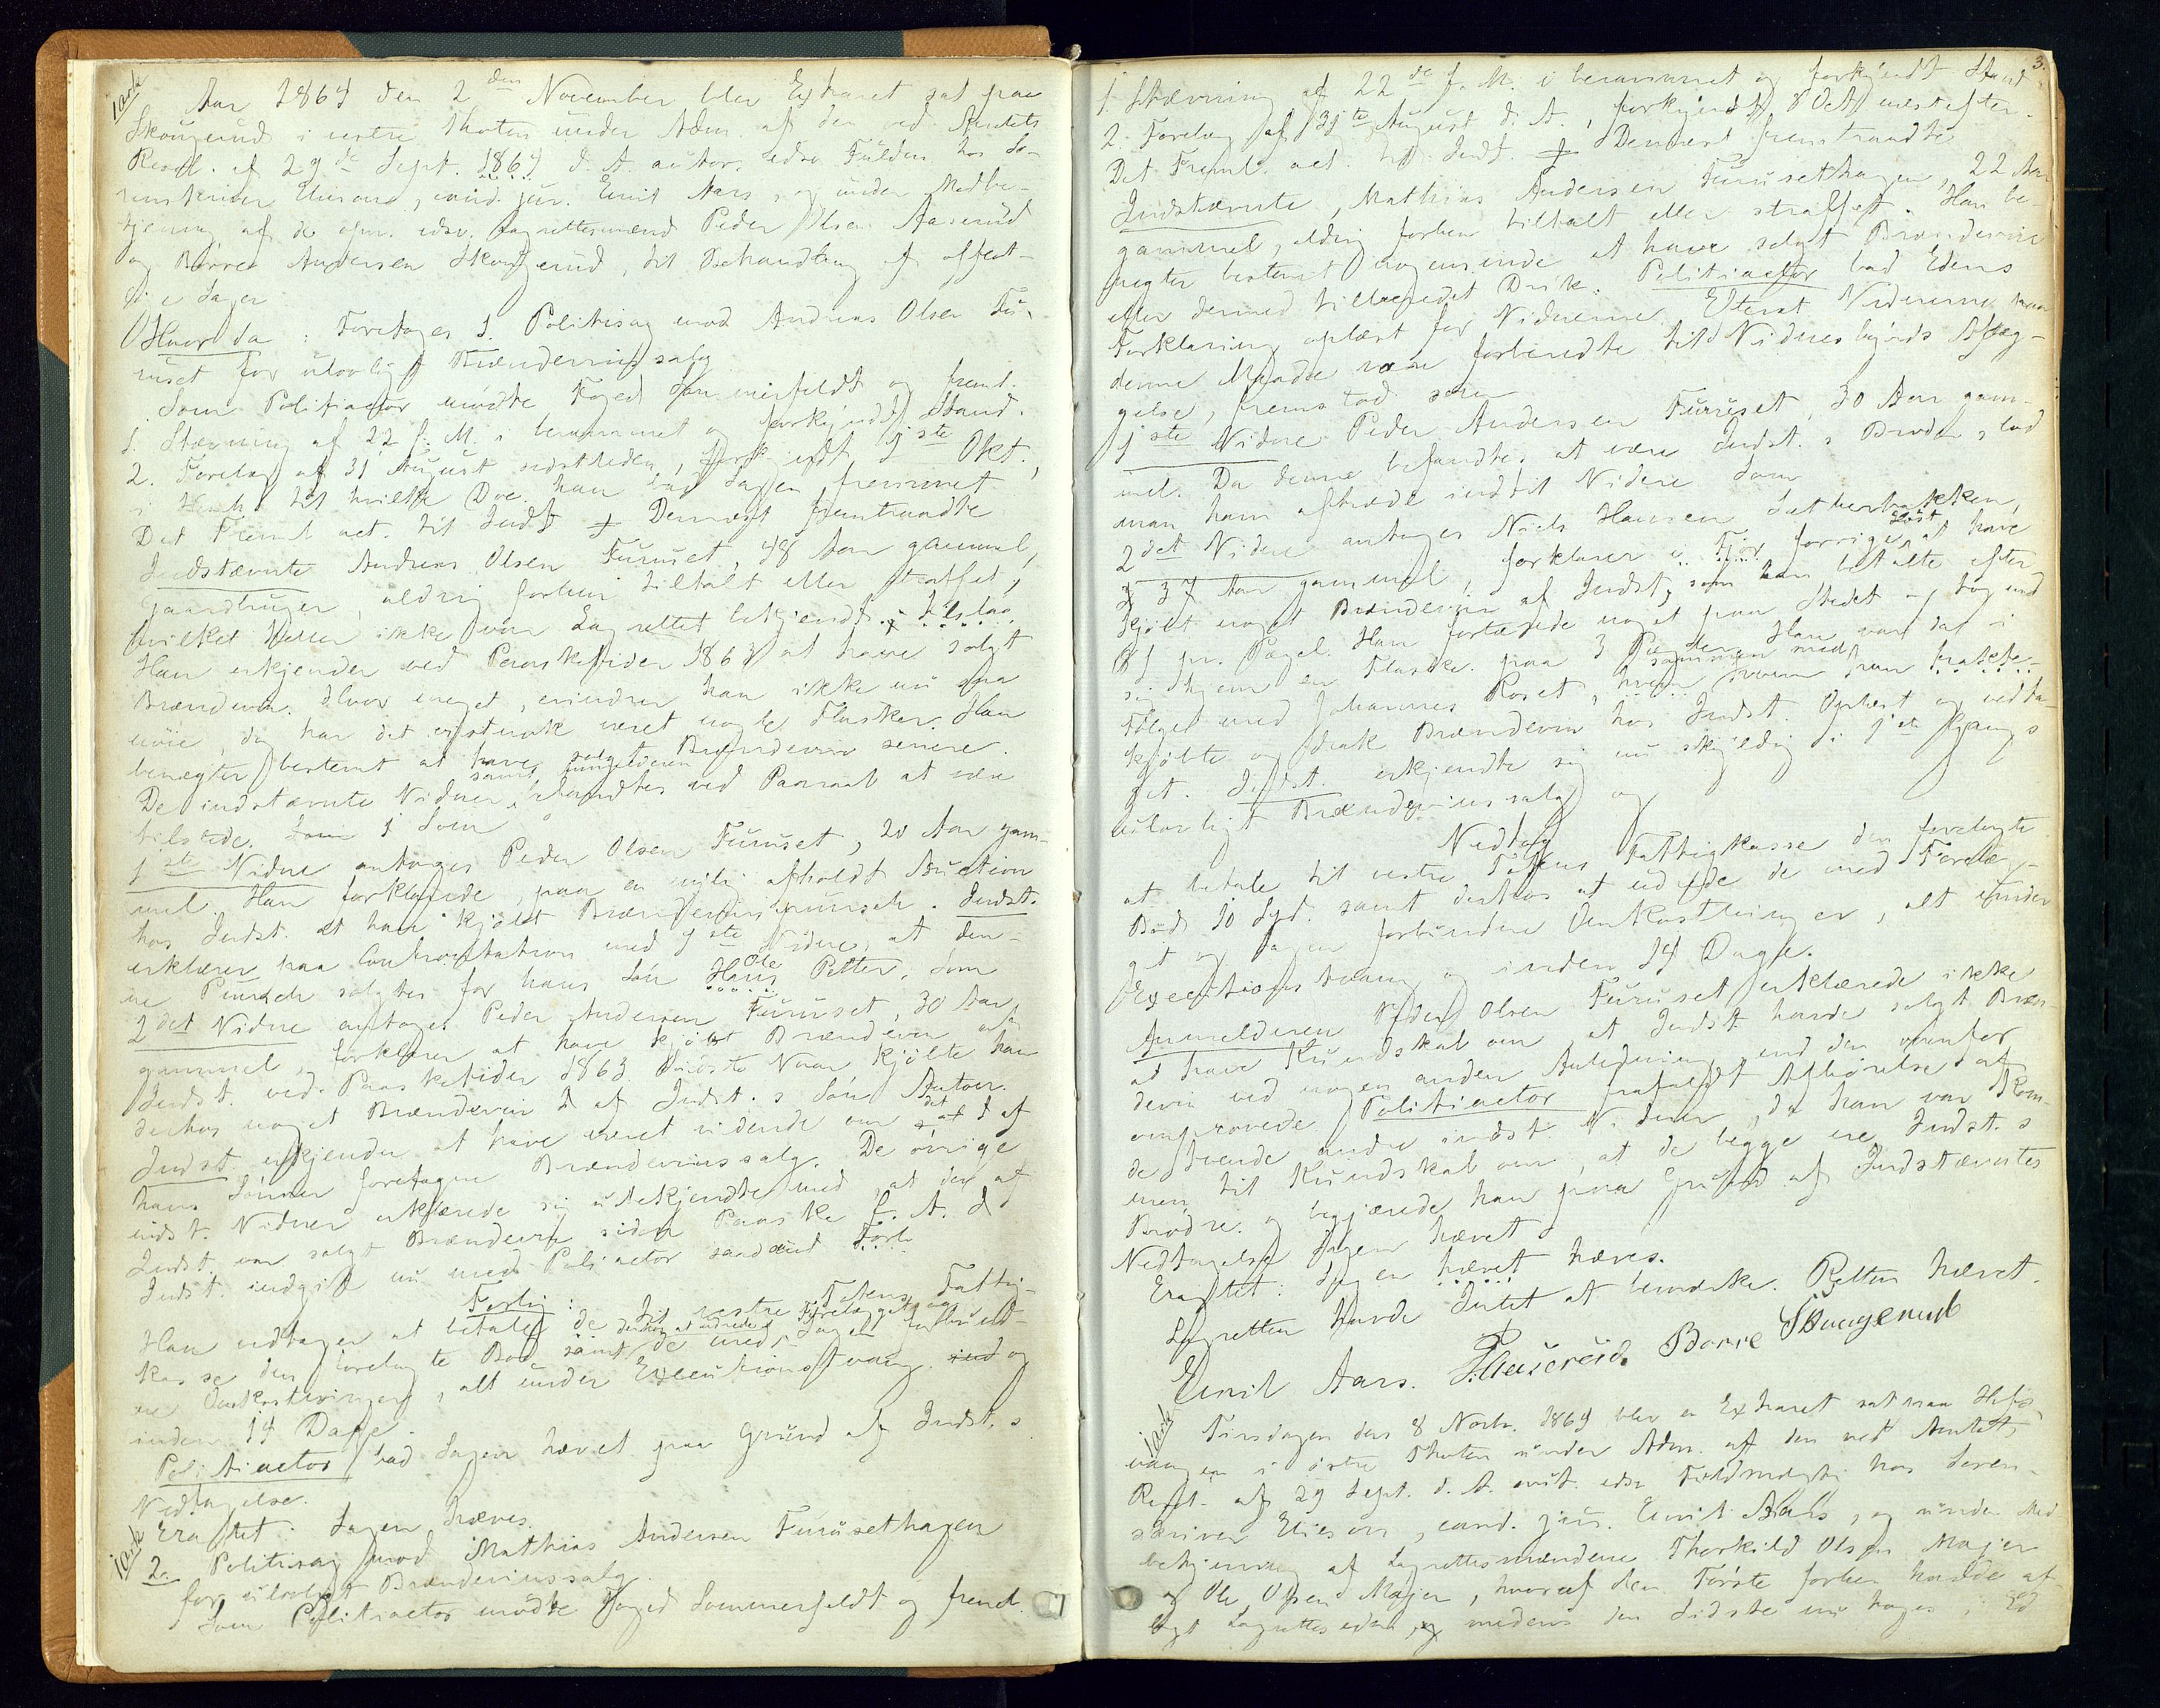 1 ark
Aar 1864 den 2den November blev Extraret sat paa
Skougerud i vestre Thoten under Adm. af den ved Amtets
Resol. af 29de Sept. 1864 d. A. autor. edsv. Fuldm. hos So-
renskriver Elieson, cand. jur. Emil Aars, og under Medbe-
tjening af de opn. edsv. Lagrettesmænd Peder Olsen Aaserud
og Børre Andersen Skougerud, til Behandling af offent-
lige Sager
Hvorda: Foretoges 1. Politisag mod Andreas Olsen Fu-
ruset for ulovligt Brændevinssalg
Som Politiactor mødte Foged Sommerfeldt og freml.
1. Stævning af 22 f. M. i berammet og forkyndt Stand.
2. Forelæg af 31 August sidstleden, forkyndt 1ste Okt.,
i Henh. til hvilke Doc. han bad Sagen fremmet
Det Freml. act. til Indt. ⌿ Dernæst fremtraadte
Indstævnte Andreas Olsen Furuset, 48 Aar gammel,
Gaardbruger, aldrig forhen tiltalt eller straffet,
hvilket heller ikke var Lagrettet bekjendt.
Han erkjender ved Paasketider 1863 at have solgt
Brændevin. Hvor meget, erindrer han ikke nu saa
nøie, dog har det vistnok været nogle Flasker. Han
benægter bestemt at have solgt Brændeviin senere.
De indstævnte Vidner, samt Anmelderen befandtes ved Paaraab at være
tilstede. Som 1 Som
1ste Vidne antoges Peder Olsen Furuset, 20 Aar gam-
mel. Han forklarede, paa en nylig afholdt Auction
hos Indst. at have kjøbt Brændeviinspunsch. Indst.
erklærer paa Confrontation med 1ste Vidne, at den-
ne Punsch solgtes for hans Søn Hans Ole Petter. Som
2det Vidne antoges Peder Andersen Furuset, 30 Aar
gammel, forklarer at have kjøbt Brændevin af
Indst. ved Paasketider 1863. Sidste Vaar kjøbte han
derhos noget Brændeviin af Indst.s Søn Anton.
Indst. erkjender at have været vidende om det af
hans Sønner foretagne Brændeviinssalg. De øvrige
indst. Vidner erklærede sig ubekjendte med, at der af
Indst. var solgt Brændevin siden Paaske f. A.
Indst. indgik nu med Politiactor saadant Forli
Forlig:
Han vedtager at betale til vestre Totens Fattig-
kasse den forelagte Bod samt derhos at udrede de med Forelægget og Sagen forbund-
ne Omkostninger, alt under Executionstvang ind og
inden 14 Dage.
Politiactor bad Sagen hævet paa Grund af Indst.s
Vedtagelse.
Eragtet: Sagen hæves.
1 ark
2. Politisag mod Mathias Andersen Furusethagen
for ulovligt Brændeviinssalg.
Som Politiactor mødte Foged Sommerfeldt og freml.
3.
1 Stævning af 22de f. M. i berammet og forkyndt Stand
2. Forelæg af 31te August d. A., forkyndt 8 Oct næstefter.
Det Freml. act. til Indt. ⌿ Dernæst fremtraadte
Indstævnte, Mathias Andersen Furusethagen, 22 Aar
gammel, aldrig forhen tiltalt eller straffet. Han be-
nægter bestemt nogensinde at have solgt Brændeviin
eller dermed tillavedet Drik. Politiactor bad Edens
Forklaring oplæst for Vidnerne. Efterat Vidnerne paa
denne Maade vare forberedte til Vidnesbyrds Aflæg-
gelse, fremstod som
1ste Vidne Peder Andersen Furuset, 30 Aar gam-
mel. Da denne befandtes at være Indst.s Broder, lod
man ham aftræde indtil Videre. Som
2det Vidne antoges Niels Hansen Sæterbakken,
37 Aar gammel, forklarer i forrige Høst at have
kjøbt noget Brændeviin af Indst., som han betalte efter
8 ß pr. Pægel. Han fortærede noget paa Stedet og tog med
sig hjem en Flaske paa 3 Pægler. Han var da i
Følge med Johannes Roset, sammen med hvem han trakte-
kjøbte og drak Brændevin hos Indst. Oplæst og vedta-
get. Indst. erkjendte sig nu skyldig i 1ste Gangs
ulovligt Brændeviinssalg og
Vedtog
at betale til vestre Totens Fattigkasse den forelagte
Bod 10 Spd. samt derhos at udrede de med Forelæg-
get og Sagen forbundne Omkostninger, alt under
Executionstvang og inden 14 Dage.
Anmelderen Peder Olsen Furuset erklærede ikke
at have Kundskab om at Indst. havde solgt Bræn-
devin ved nogen anden Anledning end den ovenfor
omprovede. Politiactor frafaldt Afhørelse af
de tvende andre indst. Vidner, da han var kom-
men til Kundskab om, at de begge ere Indst.s
Brødre og begjærede han paa Grund af Indstævntes
Vedtagelse Sagen hævet
Eragtet: Sagen hævet hæves.
Lagretten havde Intet at bemærke. Retten hævet.
Emil Aars. P. Aaserud. Børre Skougerud
1 ark
Tirsdagen den 8 Novbr. 1864 blev en Extraret sat paa Hof-
vangen i østre Thoten under Adm. af den ved Amtets
Resol. af 29 Sept. d. A. aut. edsv. Fuldmægtig hos Soren-
skriver Elieson, cand. jur. Emil Aars, og under Med-
betjening af Lagrettesmændene Thorkild Olsen Majer
og Ole Olsen Majer, hvoraf den Første forhen havde af-
lagt Lagretteseden, og medens den Sidste nu toges i Ed